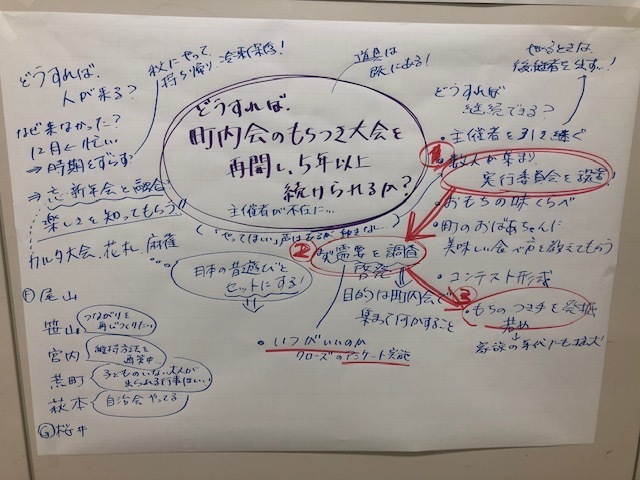 どうすれば、
人が来る？
秋にやって
持ち帰り 冷凍保存！
道具は
既にある！
やるときは、
後継者を
なぜ来なかった？
12月←忙しい
⇒時期をずらす
⇒忘・新年会と融合
楽しさを知ってもらう!!
カルタ大会、花札、麻雀
どうすれば、
町内会のもちつき大会を
再開し、5年以上
続けられるか？
主催者が不在に…
どうすれば
継続できる？
・主催者を引き継ぐ
① 数人が集まり、
実行委員会を設置！
・おもちの味くらべ
・町のおばあちゃんに
美味しい食べ方を教えてもらう
・コンテスト形式
③ ・もちのつき手を発掘
若め
家族の年代にもよるが
② まず需要を調査
啓発
目的は町内会で
集まって何かすること
日本の昔遊びと
セットにする！
・いつがいいのか
クローズのアンケート実施
Ⓕ尾山
笹山 つながりを
再びつくりたい
宮内 維持方法を
再考中
荒町 子どものいない大人が
来られる行事はいい
萩本 自治会やってる
Ⓖ桜井